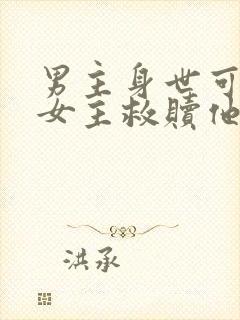 男主身世可
女主救赎他
洪承